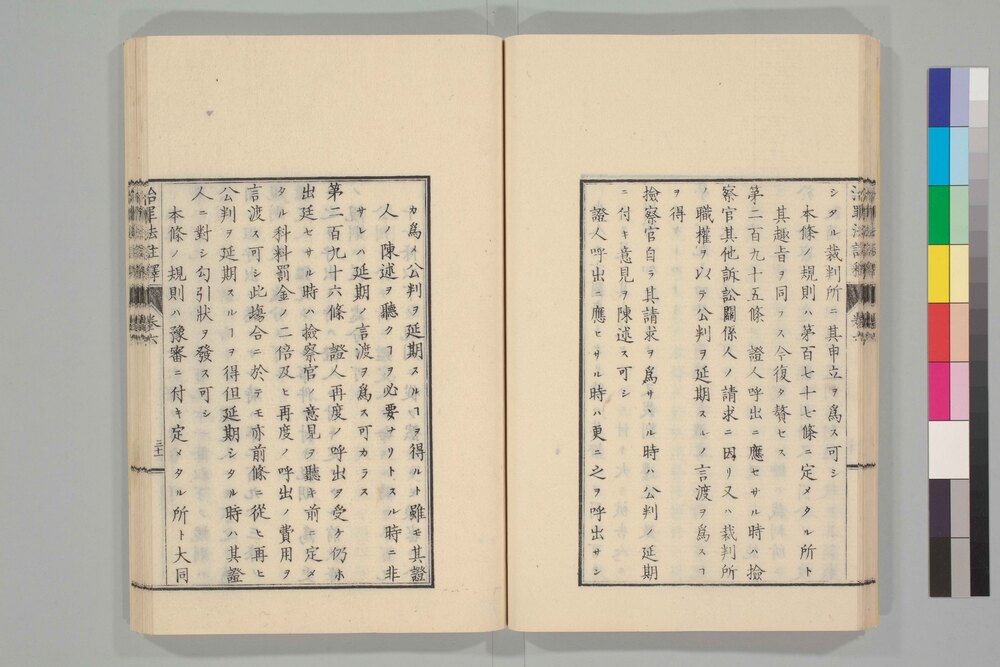 シタル裁判所ニ其申立ヲ爲ス可シ
本條ノ規則ハ第百七十七條ニ定メタル所ト
其趣旨ヲ同フス今復タ贅セス
第二百九十五條　證人呼出ニ應セサル時ハ撿
察官其他訴訟關係人ノ請求ニ因リ又ハ裁判所
ノ職權ヲ以テ公判ヲ延期スルノ言渡ヲ爲スヿ
ヲ得
撿察官自ラ其請求ヲ爲サヽル時ハ公判ノ延期
ニ付キ意見ヲ陳述ス可シ
證人呼出ニ應ヒサル時ハ更ニ之ヲ呼出サシ
カ爲メ公判ヲ延期スルヿヲ得ルト雖モ其證
人ノ陳述ヲ聽クヿヲ必要ナリトスル時ニ非
サレハ延期ノ言渡ヲ爲ス可カラス
第二百九十六條　證人再度ノ呼出ヲ受ケ仍ホ
出廷セサル時ハ撿察官ノ意見ヲ聽キ前ニ定メ
タル科料罰金ノ二倍及ヒ再度ノ呼出ノ費用ヲ
言渡ス可シ此塲合ニ於テモ亦前條ニ從ヒ再ヒ
公判ヲ延期スルヿヲ得但延期シタル時ハ其證
人ニ對シ勾引狀ヲ發ス可シ
本條ノ規則ハ豫審ニ付キ定メタル所ト大同
治罪法註釋　卷六
三十一